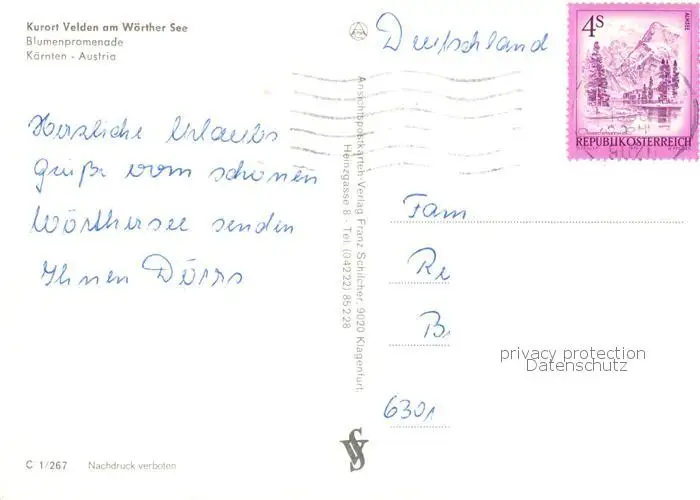 Kurort Velden am Wörther See
Blumenpromenade
Kärnten - Austria
Herzliche Urlaubs
grüße vom schönen
Wörthersee senden
Ihnen Dörrs
C 1/267 Nachdruck verboten
Ansichtspostkarten-Verlag Franz Schilcher, 9020 Klagenfurt,
Heinzgasse 8 - Tel. (04222) 85228
Deutschland
4S
ALMSEE
REPUBLIK ÖSTERREICH
Fam
Re
B
6301
privacy protection
Datenschutz